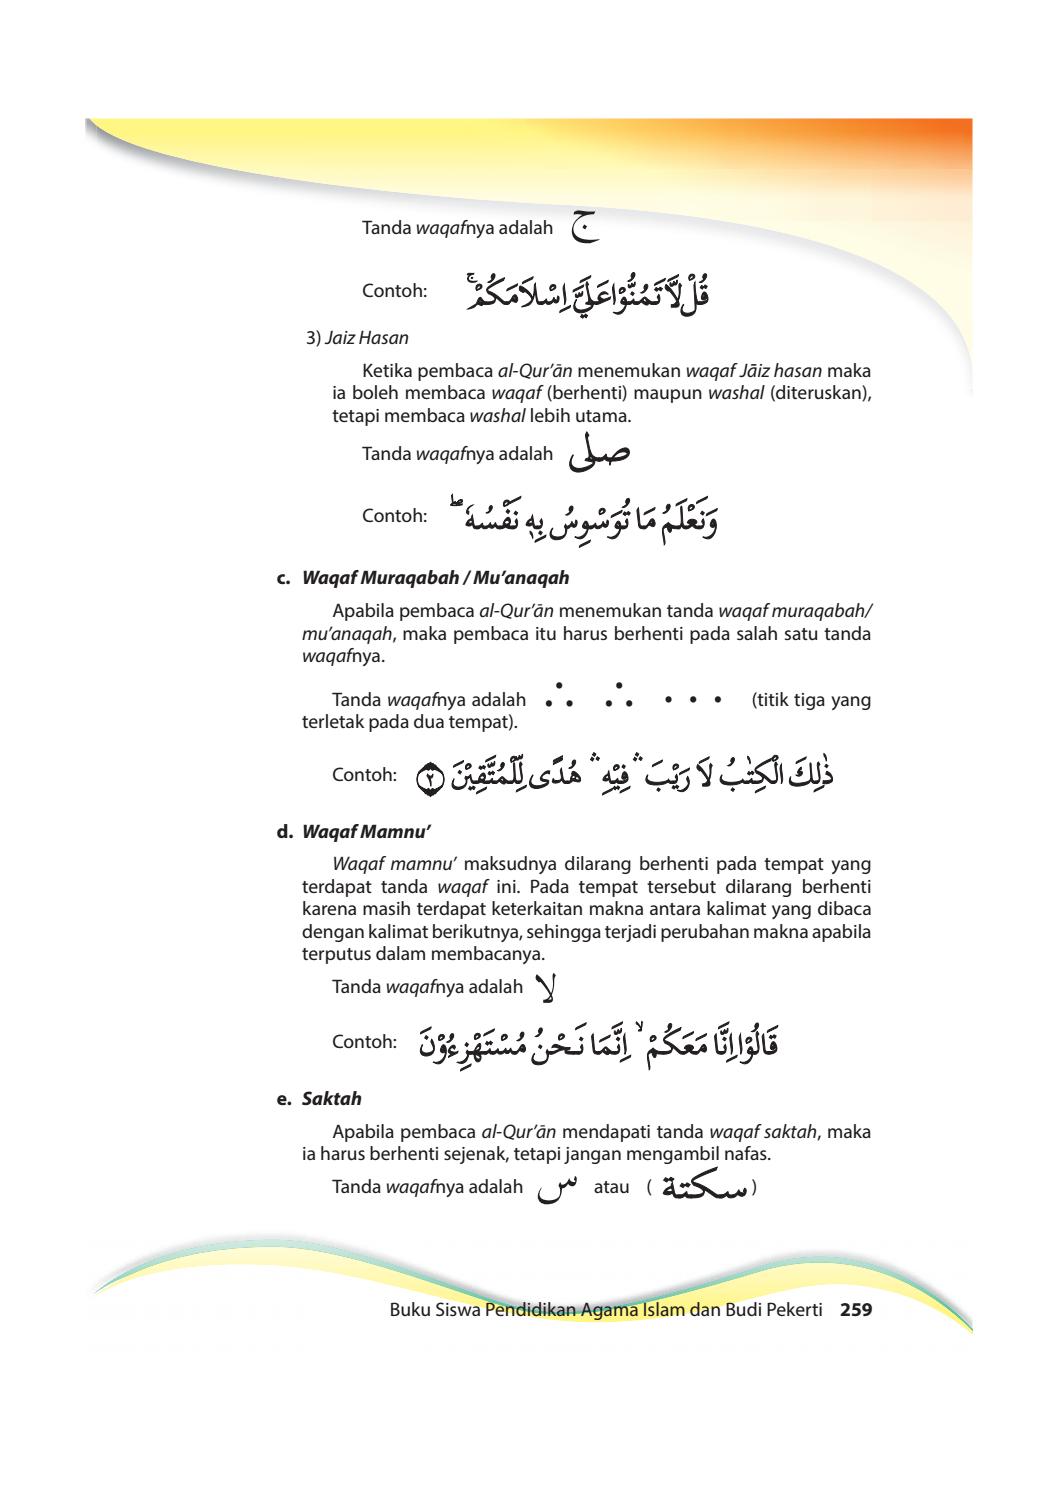 Tanda waqafnya adalah ج
Contoh: قُلْ لَّا تَمُنُّوْا عَلَيَّ اِسْلَامَكُمْ ۚ
3) Jaiz Hasan
Ketika pembaca al-Qur’ān menemukan waqaf Jāiz hasan maka
ia boleh membaca waqaf (berhenti) maupun washal (diteruskan),
tetapi membaca washal lebih utama.
Tanda waqafnya adalah صلى
Contoh: وَنَعْلَمُ مَا تُوَسْوِسُ بِهٖ نَفْسُهٗ ۖ
c. Waqaf Muraqabah / Mu’anaqah
Apabila pembaca al-Qur’ān menemukan tanda waqaf muraqabah/
mu’anaqah, maka pembaca itu harus berhenti pada salah satu tanda
waqafnya.
Tanda waqafnya adalah ∴ ∴ • • • (titik tiga yang
terletak pada dua tempat).
Contoh: ذٰلِكَ الْكِتٰبُ لَا رَيْبَ ۛ فِيْهِ ۛ هُدًى لِّلْمُتَّقِيْنَ ٢
d. Waqaf Mamnu’
Waqaf mamnu’ maksudnya dilarang berhenti pada tempat yang
terdapat tanda waqaf ini. Pada tempat tersebut dilarang berhenti
karena masih terdapat keterkaitan makna antara kalimat yang dibaca
dengan kalimat berikutnya, sehingga terjadi perubahan makna apabila
terputus dalam membacanya.
Tanda waqafnya adalah لا
Contoh: قَالُوْا اِنَّا مَعَكُمْ ۙ اِنَّمَا نَحْنُ مُسْتَهْزِءُوْنَ
e. Saktah
Apabila pembaca al-Qur’ān mendapati tanda waqaf saktah, maka
ia harus berhenti sejenak, tetapi jangan mengambil nafas.
Tanda waqafnya adalah س atau ( سكتة )
Buku Siswa Pendidikan Agama Islam dan Budi Pekerti 259